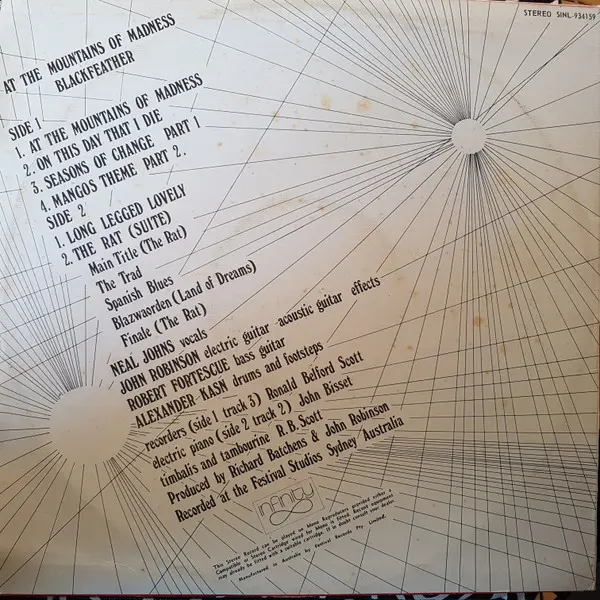 STEREO SINL-934159
AT THE MOUNTAINS OF MADNESS
BLACKFEATHER
SIDE 1
1. AT THE MOUNTAINS OF MADNESS
2. ON THIS DAY THAT I DIE
3. SEASONS OF CHANGE PART 1
4. MANGOS THEME PART 2.
SIDE 2
1. LONG LEGGED LOVELY
2. THE RAT (SUITE)
Main Title (The Rat)
The Trad
Spanish Blues
Blazwaorden (Land of Dreams)
Finale (The Rat)
NEAL JOHNS vocals
JOHN ROBINSON electric guitar acoustic guitar effects
ROBERT FORTESCUE bass guitar
ALEXANDER KASN drums and footsteps
recorders (side 1 track 3) Ronald Belford Scott
electric piano (side 2 track 2) John Bisset
timbalis and tambourine R.B. Scott
Produced by Richard Batchens & John Robinson
Recorded at the Festival Studios Sydney Australia
infinity
This Stereo Record can be played on Mono Reproducers provided either a
Compatible or Stereo Cartridge wired for Mono is fitted. Recent equipment
may already be fitted with a suitable cartridge. If in doubt consult your dealer.
Manufactured in Australia by Festival Records Pty. Limited.